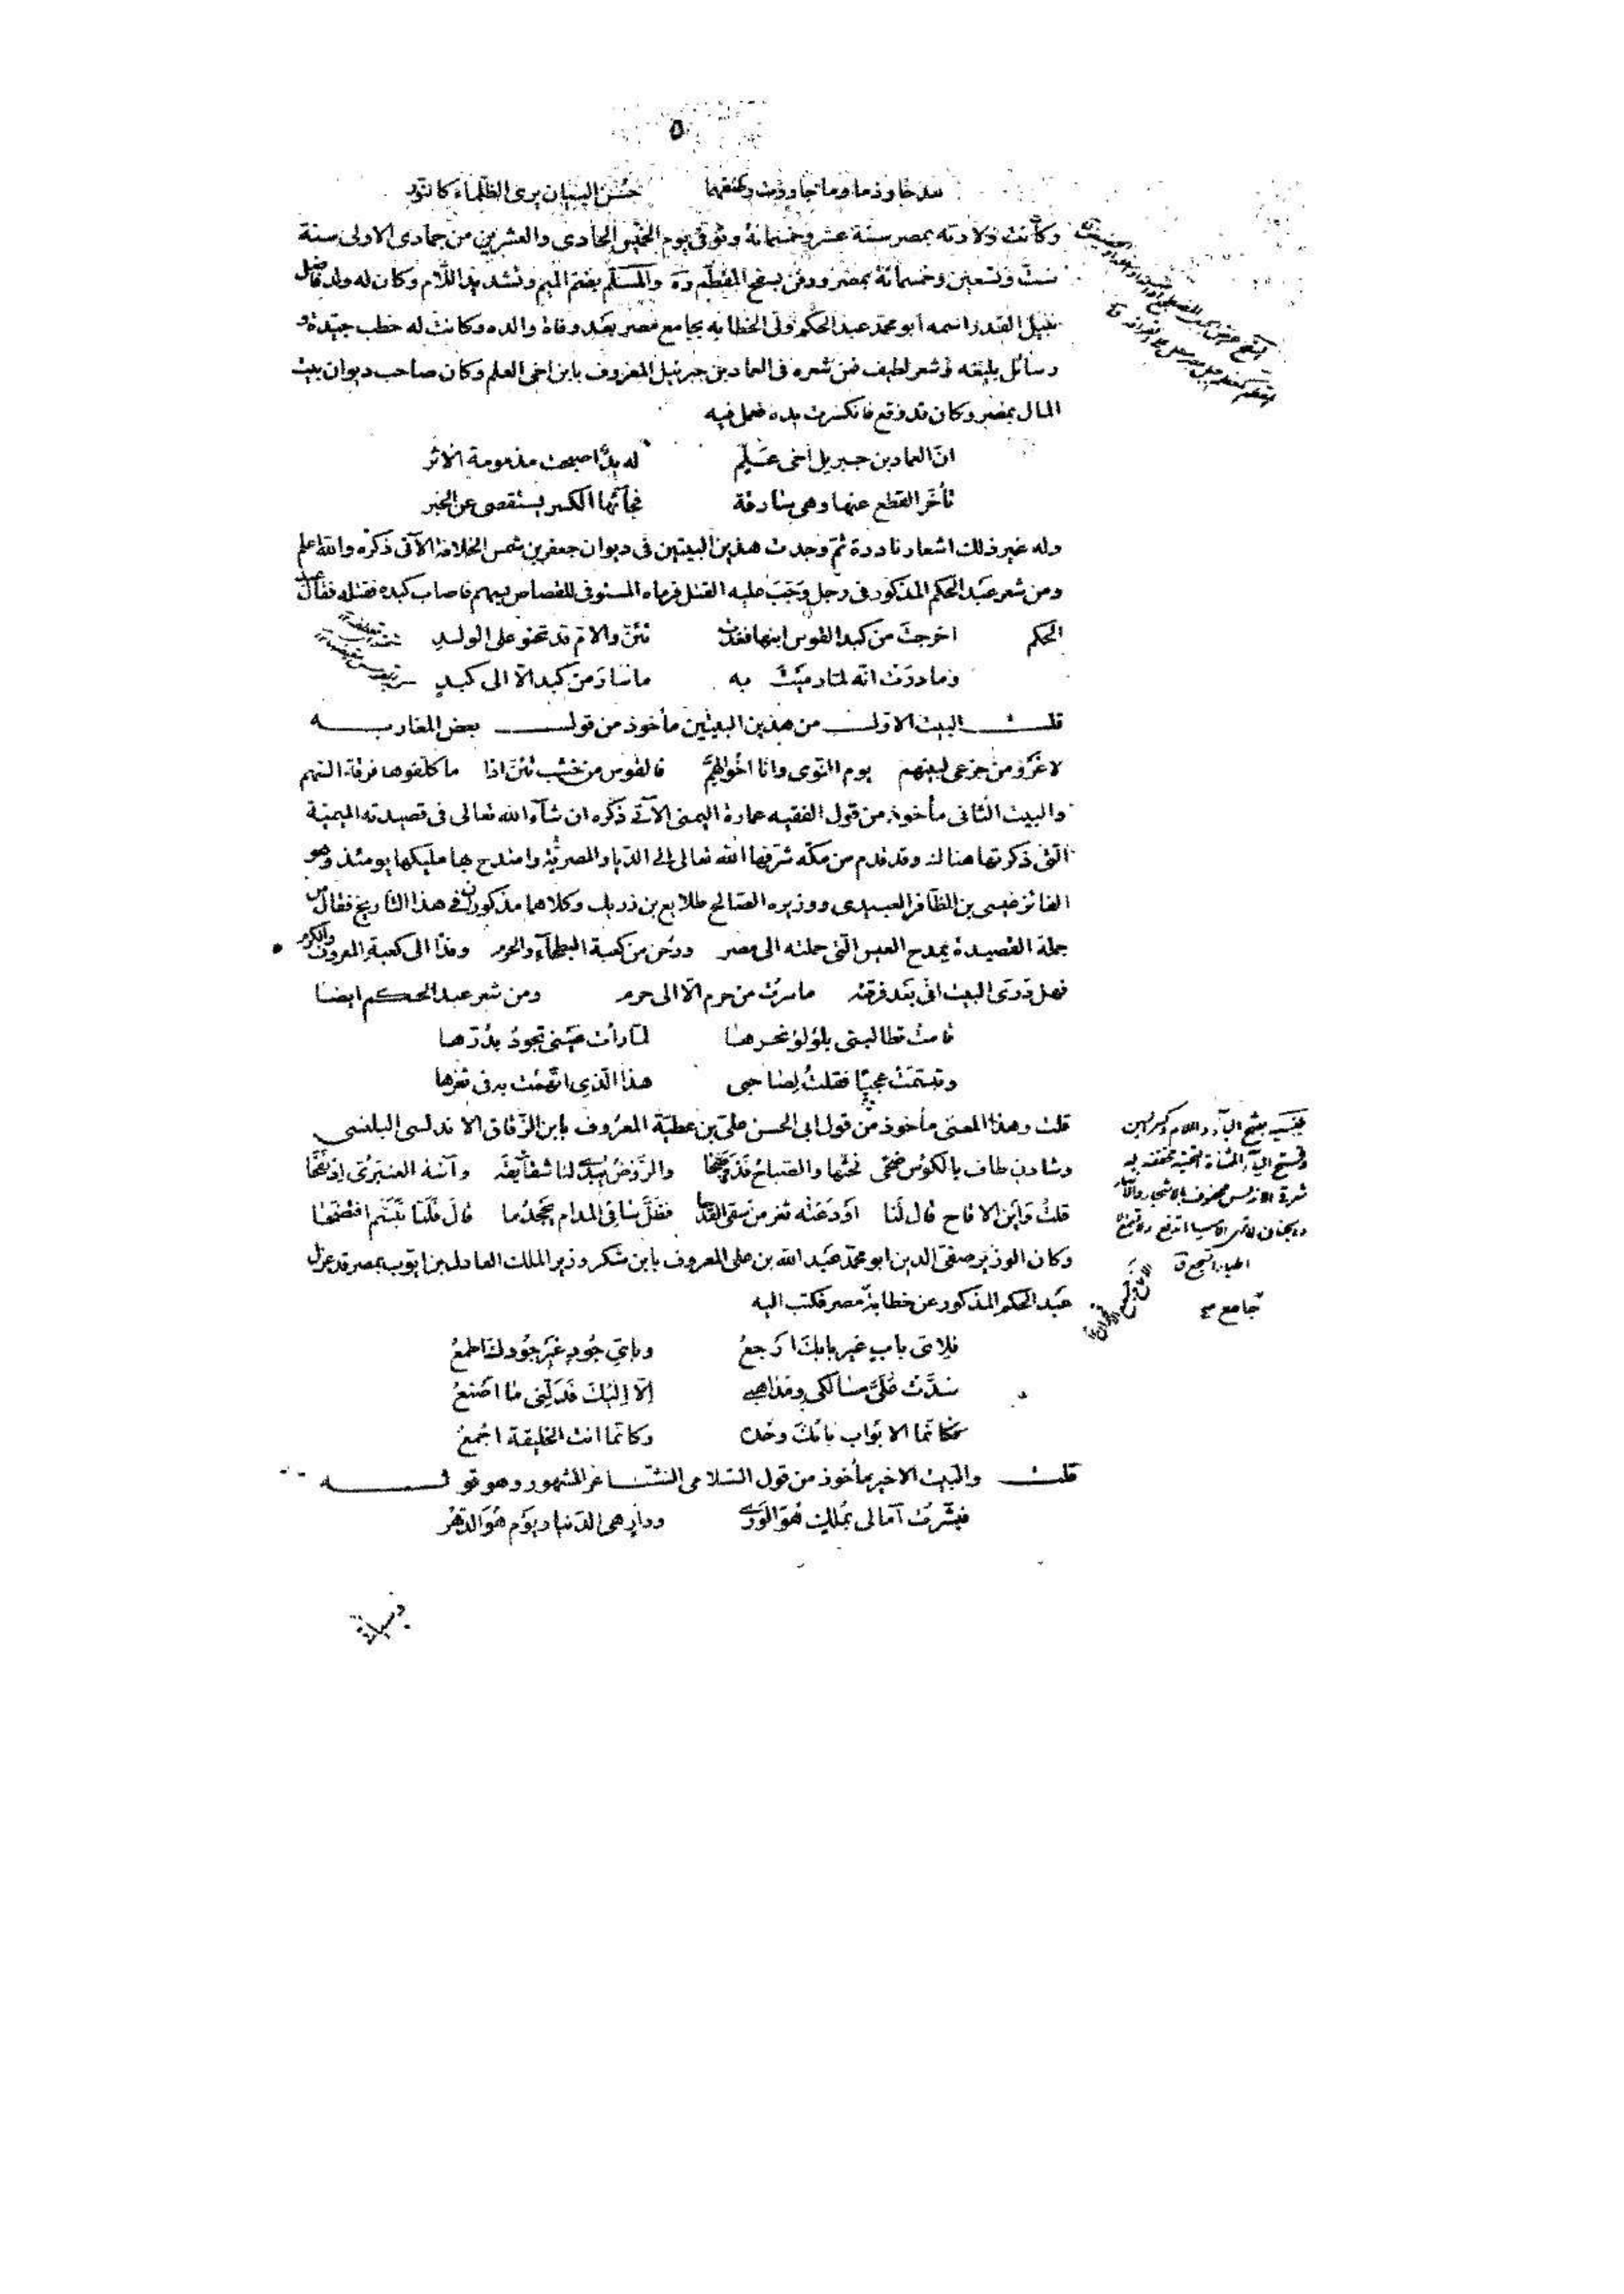 ٥
وما جاوزت حسن البيان يرى الظلماء كالنور
وكانت ولادته بمصر سنة عشر وخمسمائة وتوفى يوم الخميس الحادى والعشرين من جمادى الاولى سنة
ست وتسعين وخمسمائة بمصر ودفن بسفح المقطم ره والمسلّم بضم الميم وتشديد اللام وكان له ولد فاضل
نبيل القدر اسمه ابو محمد عبد الحكم ولى الخطابة بجامع مصر بعد وفاة والده وكانت له خطب جيّدة و
رسائل بليغه وشعر لطيف فمن شعره فى العماد بن جبرئيل المعروف بابن اخى العلم وكان صاحب ديوان بيت
المال بمصر وكان قد وقع فانكسرت يده فعمل فيه
انّ العماد بن جبريل اخى عَلَم له يدٌ اصبحت مذمومة الاثر
تأخّر القطع عنها وهى سارقة فجآئها الكسر يستقصى عن الخبر
وله غير ذلك اشعار نادرة ثمّ وجدت هذين البيتين فى ديوان جعفر بن شمس الخلافة الآتى ذكره والله اعلم
ومن شعر عبد الحكم المذكور فى رجل وَجَبَ عليه القتل فرماه المستوفى للقصاص بسهم فاصاب كبده فقتله فقال عبد
الحكم اخرجتَ من كبد القوس ابنها فغدت تئنّ والامّ قد تحنو على الولدِ
وما دَرَت انّه لمّا رميتَ به ما سَارَ من كبد الّا الى كبدِ
قلت البيت الاول من هذين البيتين مأخوذ من قول بعض المغاربه
لا غَروَ من جزعى لبينهم يوم النوى وانا اخو الهمّ فالقوس من خشب تئنّ اذا ما كلّفوها فرقة السّهم
والبيت الثانى مأخوذ من قول الفقيه عمارة اليمنى الآتى ذكره ان شآء الله تعالى فى قصيدته الميمية
التى ذكرتها هناك وقد قدم من مكّه شرّفها الله تعالى الى الديار المصريّة وامتدح بها مليكها يومئذ وهو
الفائز عيسى بن الظافر العبيدى ووزيره الصالح طلايع بن رزيك وكلاهما مذكوران فى هذا التاريخ فقال من
جملة القصيدة يمدح العيس التى حملته الى مصر ورحن من كعبة البطحآء والحرم وفدًا الى كعبة المعروف والكرم
فهل دَرَى البيت انى بَعد فرقته ما سرتُ من حرم الّا الى حرم ومن شعر عبد الحكم ايضا
قامت تطالبنى بلؤلؤ نحرها لمّا رأت عَينى تجودُ بدُرّها
وتبسّمَتْ عجبًا فقلتُ لصَاحبى هذا الّذى اتّهمت به فى ثغرها
قلت وهذا المعنى مأخوذ من قول ابى الحسن علىّ بن عطيّة المعروف بابن الزّقاق الاندلسى البلنسى
وشادن طاف بالكؤس ضحًى فحثّها والصّباح قد وضحا والرّوضُ يُبدى لنا شقآئقه وآسُهُ العنبرىّ قد نَفَحا
قلتُ وَاَينَ الاقاح قال لَنا اَودَعَتْه ثغر من سَقى القَدَحا فظلّ سَاقى المدام يجحدُ ما قالَ فلمّا تبَسّم افتضحَا
وكان الوزير صفىّ الدين ابو محمّد عَبد الله بن على المعروف بابن شكر وزير الملك العادل بن ايّوب بمصر قد عزل
عَبد الحكم المذكور عن خطابة مصر فكتب اليه
فلاىّ بابٍ غير بابك ارجعُ وباىّ جُودٍ غَيرَ جُودك اطمعُ
سُدَّت عَلىَّ مسالكى ومذاهبى الّا اِليكَ فَدُلّنى مَا اَصنَعُ
فكانّما الابوَاب بابُكَ وحدَه وكانّما انت الخليقة اجمعُ
قلت والبيت الاخير مأخوذ من قول السّلامى الشّاعر المشهور وهو قوله
فبشّرتُ آمالى بمُلكٍ هُوَ الوَرى ودارٍ هى الدّنيا ويَومٍ هُوَ الدّهرُ
بلنسيه بفتح الباء واللام وكسر السين
وفتح الياء المثناة التحتية مخففه
شرق الاندلس محفوف بالاشجار
جامع